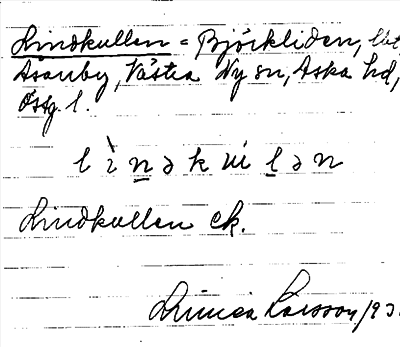 Lindkullen = Björkliden, lht
Åsanby, Västra Ny sn, Aska hd,
Östg. l.
lìnəkulən
Lindkullen ek.
Linnea Larsson 193